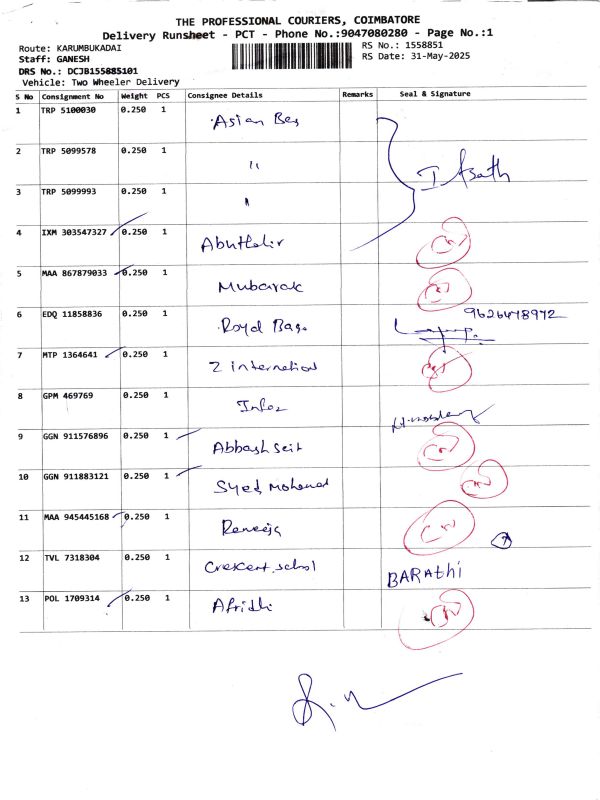 THE PROFESSIONAL COURIERS, COIMBATORE
Delivery Runsheet - PCT - Phone No.:9047080280 - Page No.:1
Route: KARUMBUKADAI RS No.: 1558851
Staff: GANESH RS Date: 31-May-2025
DRS No.: DCJB155885101
Vehicle: Two Wheeler Delivery
S No Consignment No Weight PCS Consignee Details Remarks Seal & Signature
1 TRP 5100030 0.250 1 Asian Bag
2 TRP 5099578 0.250 1 "
3 TRP 5099993 0.250 1 "
4 IXM 303547327 0.250 1 Abuthahir
5 MAA 867879033 0.250 1 Mubarak
6 EDQ 11858836 0.250 1 Royal Bag. 9626478972
7 MTP 1364641 0.250 1 Z internation
8 GPM 469769 0.250 1
9 GGN 911576896 0.250 1 Abbash seit
10 GGN 911883121 0.250 1 Syed Mohamad
11 MAA 945445168 0.250 1
7
12 TVL 7318304 0.250 1 Crescent school BARAthi
13 POL 1709314 0.250 1 Afridi